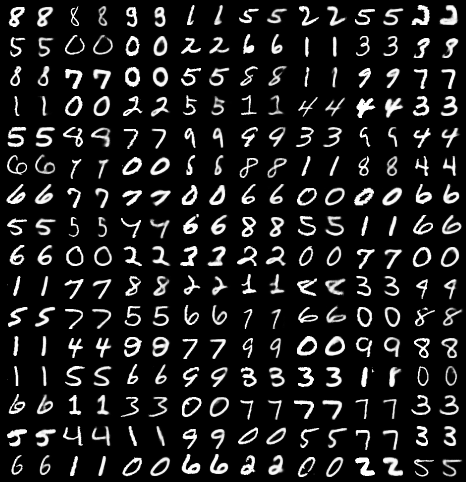 8 8 8 8 9 9 1 1 5 5 2 2 5 5 2 2
5 5 0 0 0 0 2 2 6 6 1 1 3 3 8 8
8 8 7 7 0 0 5 5 8 8 1 1 9 9 7 7
1 1 0 0 2 2 5 5 1 1 4 4 4 4 3 3
5 5 8 8 7 7 9 9 9 9 3 3 9 9 4 4
6 6 7 7 0 0 8 8 8 8 1 1 8 8 4 4
6 6 7 7 7 7 0 0 6 6 0 0 0 0 6 6
5 5 5 5 4 4 6 6 8 8 5 5 1 1 6 6
6 6 0 0 2 2 3 3 2 2 0 0 7 7 0 0
1 1 7 7 8 8 2 2 1 1 8 8 3 3 9 9
5 5 7 7 5 5 6 6 7 7 6 6 0 0 8 8
1 1 4 4 9 9 7 7 9 9 0 0 9 9 8 8
1 1 5 5 6 6 9 9 3 3 3 3 1 1 0 0
6 6 1 1 3 3 0 0 7 7 7 7 7 7 3 3
5 5 4 4 1 1 9 9 0 0 5 5 7 7 3 3
6 6 1 1 0 0 6 6 2 2 0 0 2 2 5 5